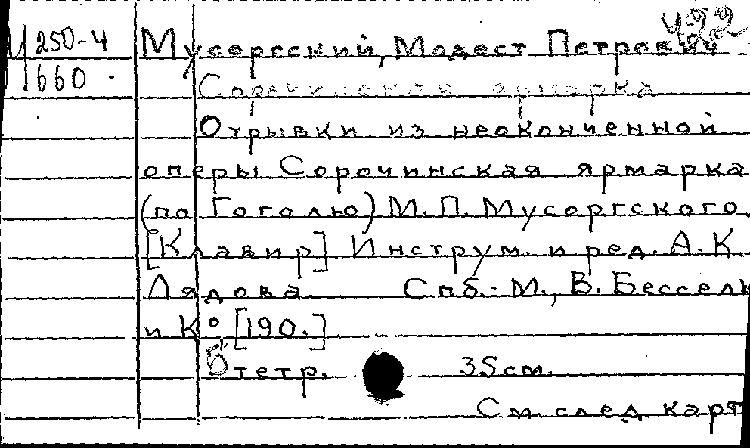 422
250-4 Мусоргский, Модест Петрович
660 Сорочинская ярмарка
Отрывки из неоконченной
оперы Сорочинская ярмарка
(по Гоголю) М.П. Мусоргского.
[Клавир] Инструм. и ред. А.К.
Лядова Спб.-М., В. Бессель
и К° [190.]
тетр. 35см.
См след карт